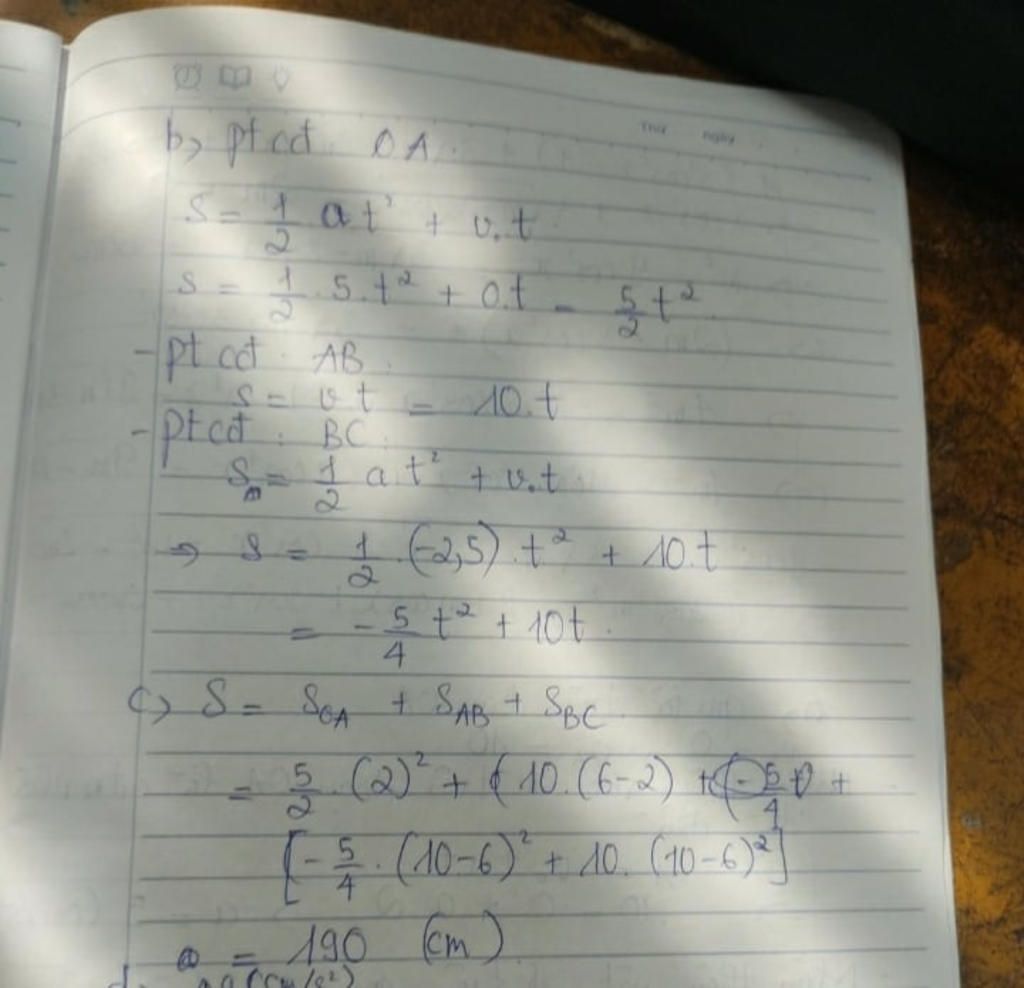 Thứ ngày
b, pt cđ : OA.
S = 1/2 at² + v.t
s = 1/2 . 5.t² + 0.t = 5/2 t².
- pt cđ : AB.
s = vt = 10.t
- Pt cđ : BC.
S = 1/2 at² + v.t
=> s = 1/2 . (-2,5) . t² + 10.t
= -5/4 t² + 10t.
c, S = S_OA + S_AB + S_BC
= 5/2 . (2)² + ( 10. (6-2) +
[-5/4 . (10-6)² + 10. (10-6)²]
= 190 (cm)
(cm/s²)